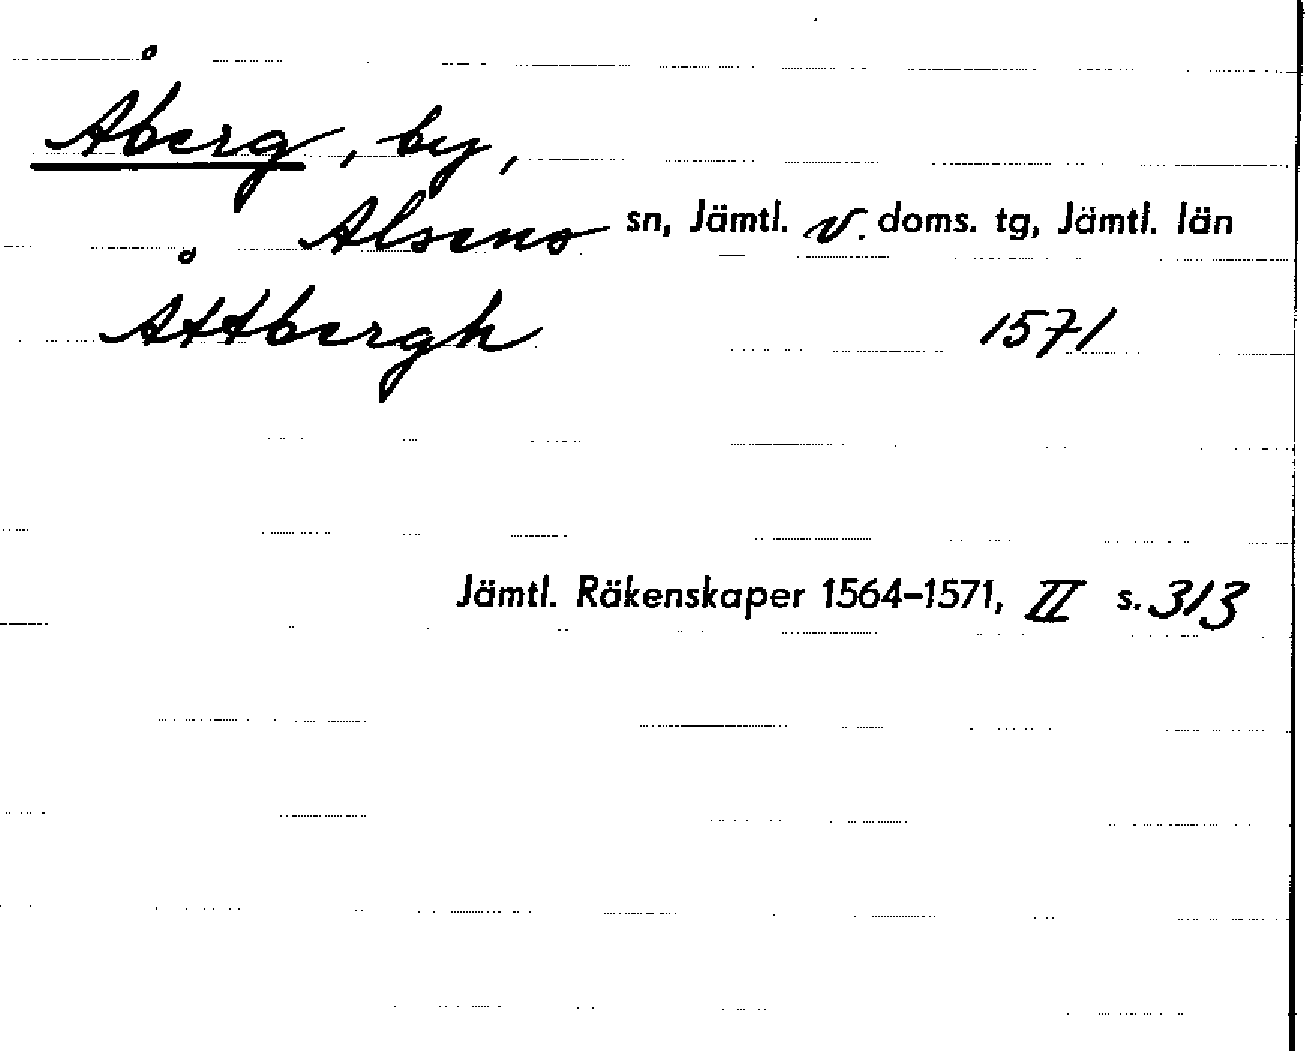 Åberg, by,
Alsens sn, Jämtl. v. doms. tg, Jämtl. län
Åttbergh 1571
Jämtl. Räkenskaper 1564–1571, II s. 313